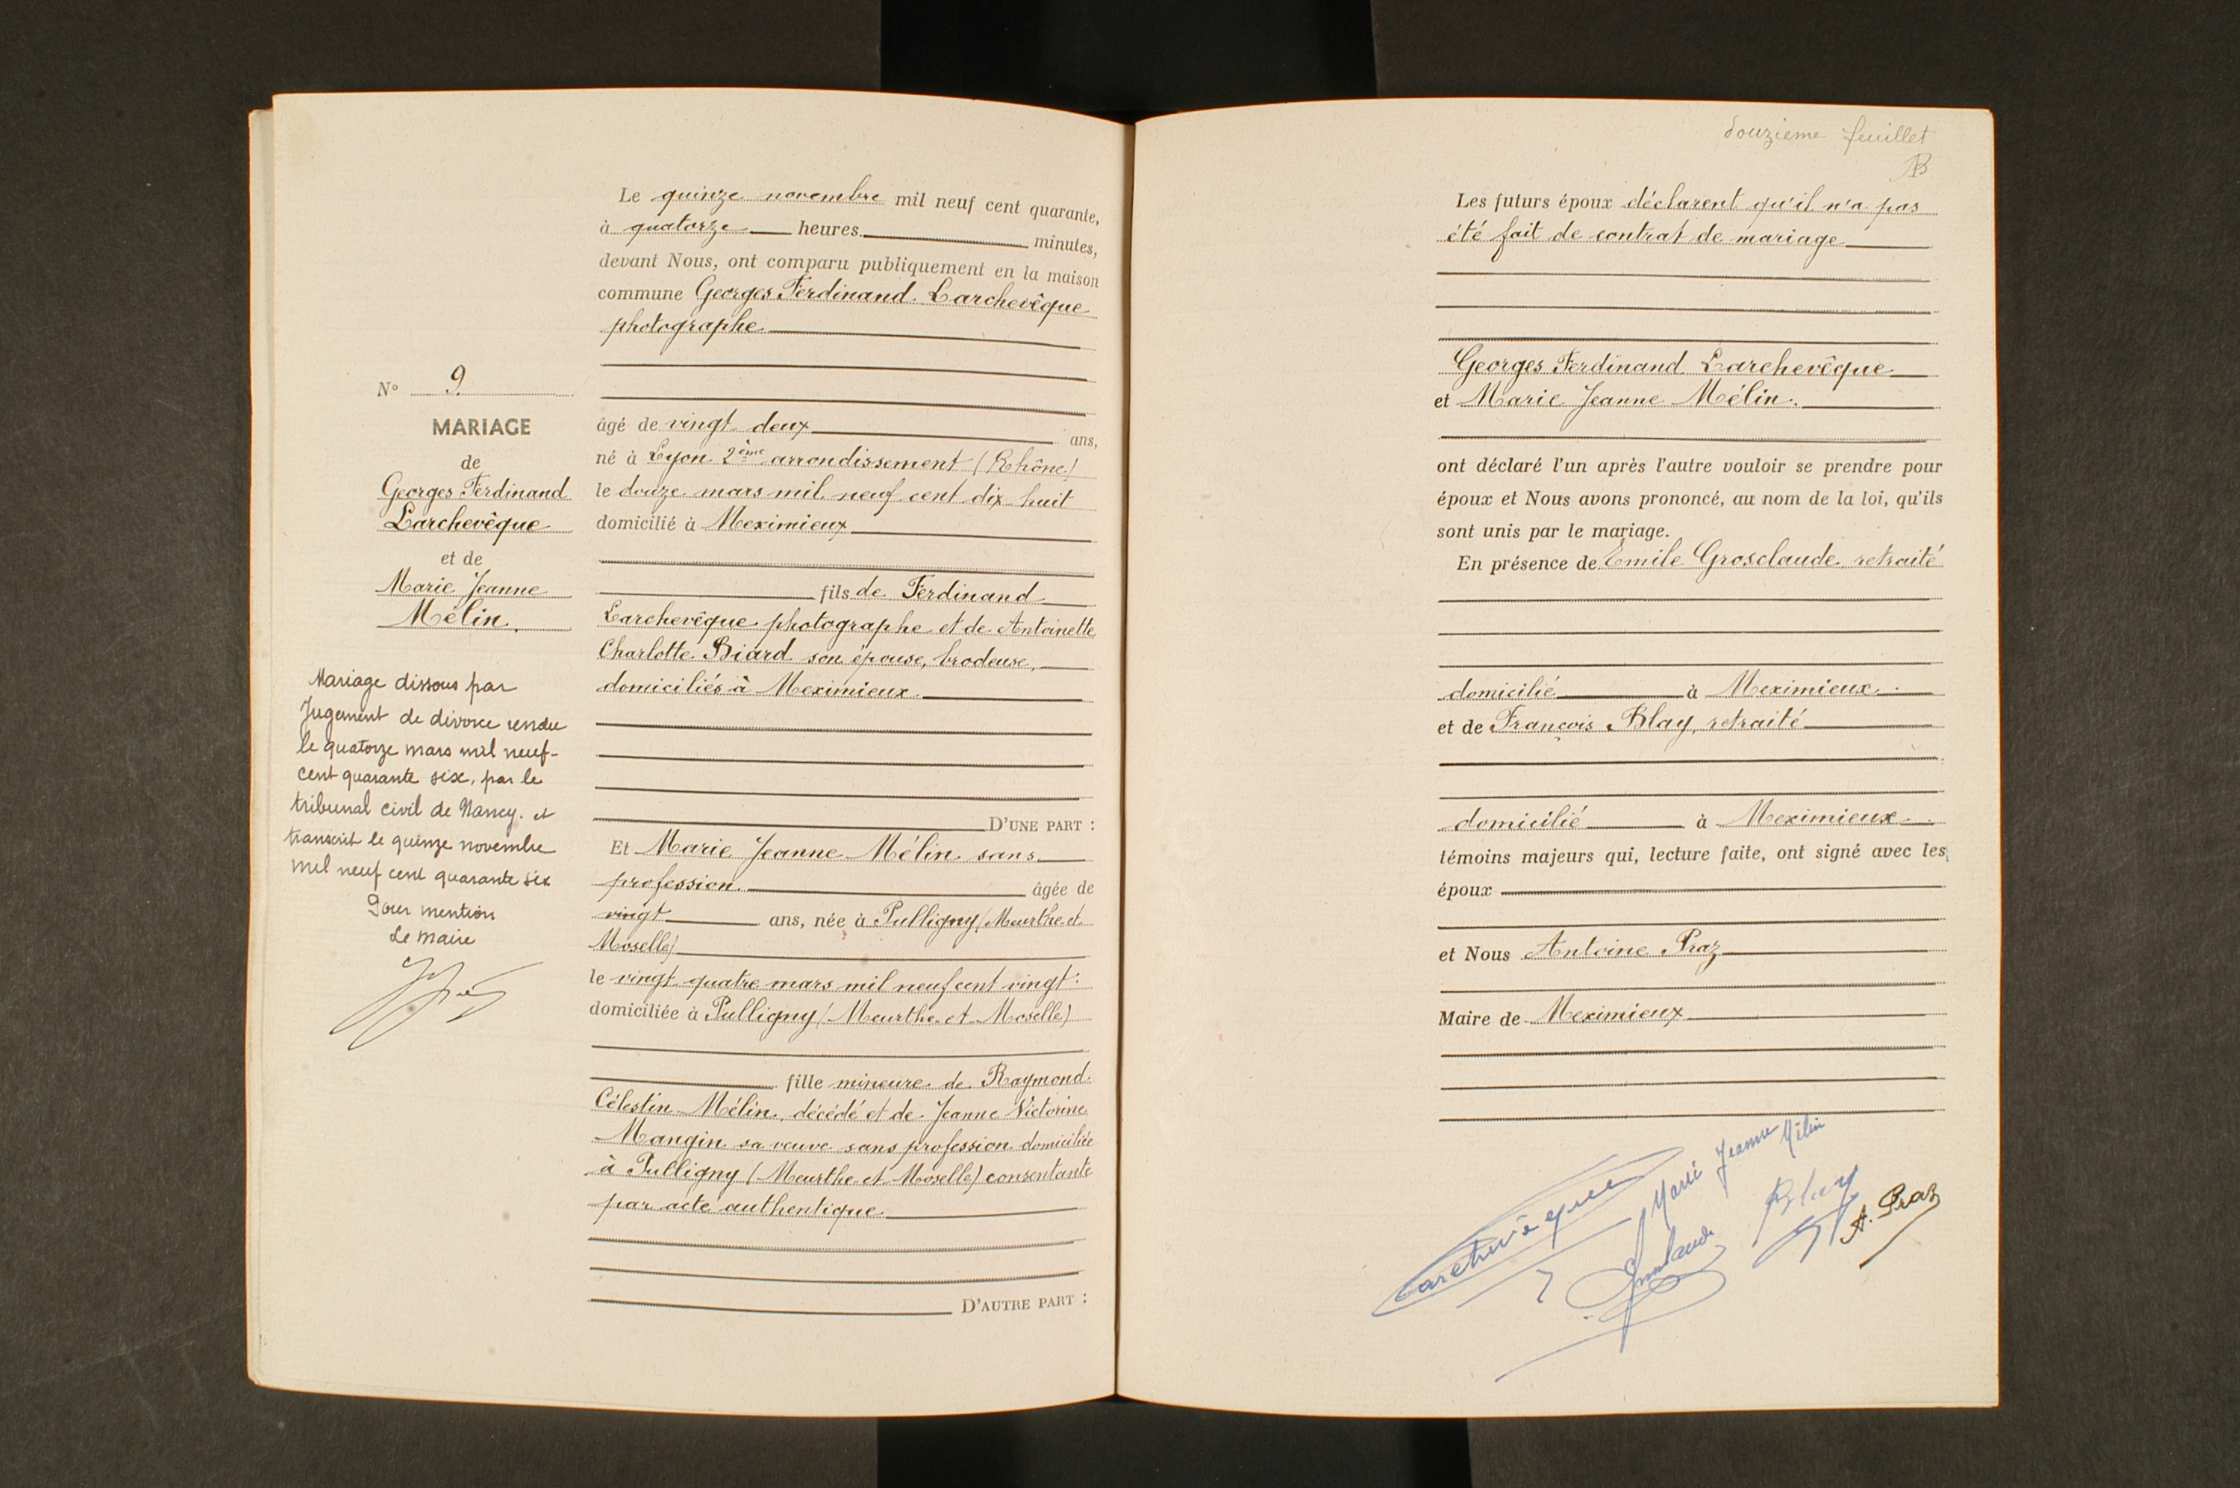 N° 9.
MARIAGE
de
Georges Ferdinand
Larchevêque
et de
Marie Jeanne
Mélin.
Mariage dissous par
Jugement de divorce rendu
le quatorze mars mil neuf-
cent quarante six, par le
tribunal civil de Nancy. et
transcrit le quinze novembre
mil neuf cent quarante six
Pour mention
Le Maire
Le quinze novembre mil neuf cent quarante,
à quatorze heures minutes,
devant Nous, ont comparu publiquement en la maison
commune Georges Ferdinand Larchevêque
photographe
âgé de vingt deux ans,
né à Lyon 2ème arrondissement (Rhône)
le douze mars mil neuf cent dix huit
domicilié à Meximieux
fils de Ferdinand
Larchevêque photographe et de Antoinette
Charlotte Biard son épouse, brodeuse,
domiciliés à Meximieux
D'UNE PART :
Et Marie Jeanne Mélin sans
profession âgée de
vingt ans, née à Pulligny (Meurthe et
Moselle)
le vingt quatre mars mil neuf cent vingt
domiciliée à Pulligny (Meurthe et Moselle)
fille mineure de Raymond
Célestin Mélin, décédé et de Jeanne Victorine
Mangin sa veuve sans profession domiciliée
à Pulligny (Meurthe et Moselle) consentante
par acte authentique
D'AUTRE PART :
douzième feuillet
Les futurs époux déclarent qu'il n'a pas
été fait de contrat de mariage
Georges Ferdinand Larchevêque
et Marie Jeanne Mélin.
ont déclaré l'un après l'autre vouloir se prendre pour
époux et Nous avons prononcé, au nom de la loi, qu'ils
sont unis par le mariage.
En présence de Emile Grosclaude retraité
domicilié à Meximieux
et de François Blay, retraité
domicilié à Meximieux
témoins majeurs qui, lecture faite, ont signé avec les
époux
et Nous Antoine Praz
Maire de Meximieux
Larchevêque
Marie Jeanne Mélin
Grosclaude
Blay
A. Praz